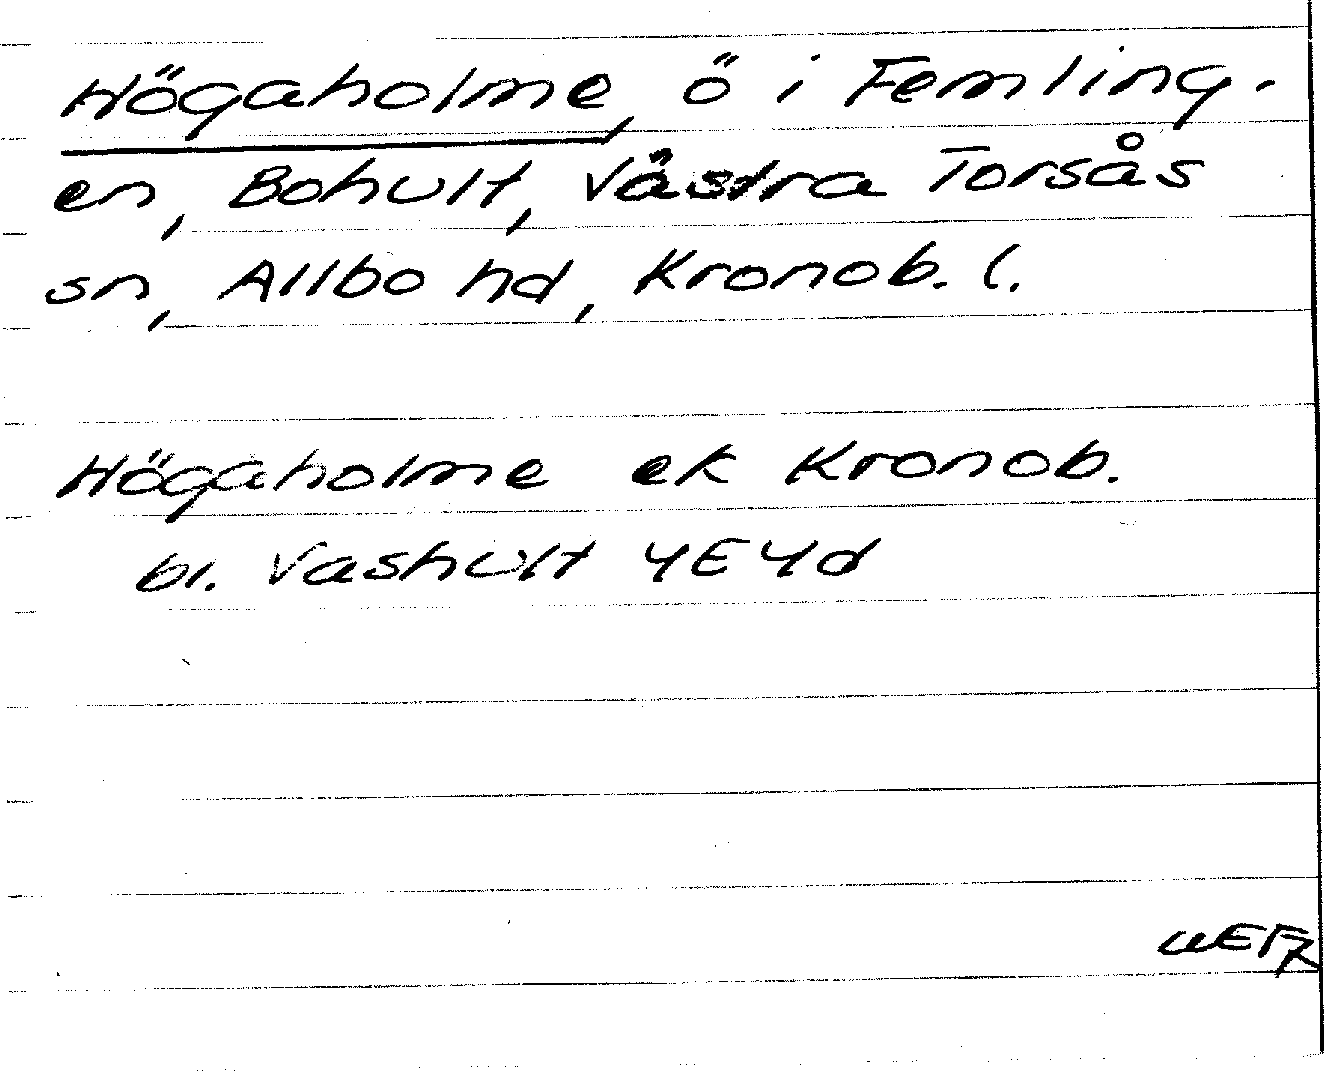 Högaholme, ö i Femling-
en, Bohult, Västra Torsås
sn, Allbo hd, Kronob. l.
Högaholme ek Kronob.
bl. Vashult 4E4d